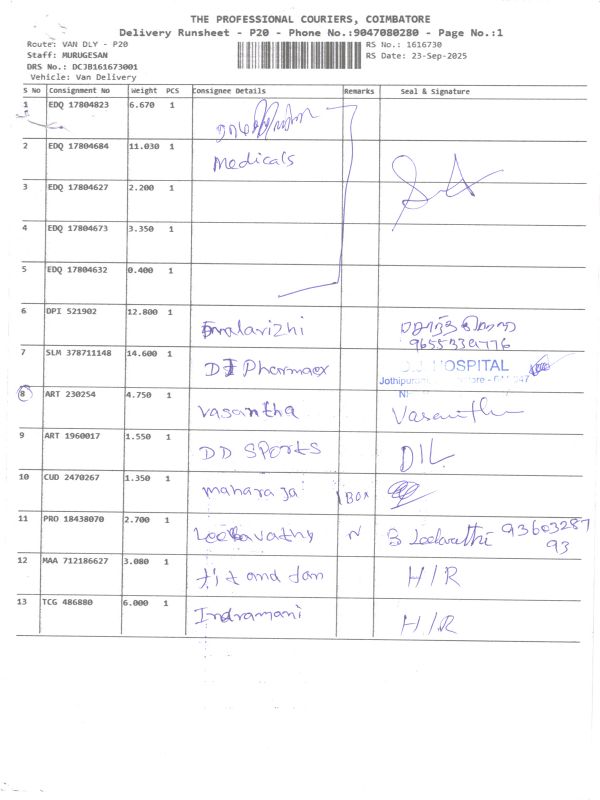 THE PROFESSIONAL COURIERS, COIMBATORE
Delivery Runsheet - P20 - Phone No.:9047080280 - Page No.:1
Route: VAN DLY - P20
RS No.: 1616730
Staff: MURUGESAN
RS Date: 23-Sep-2025
DRS No.: DCJB161673001
Vehicle: Van Delivery
S No Consignment No Weight PCS Consignee Details Remarks Seal & Signature
1 EDQ 17804823 6.670 1
2 EDQ 17804684 11.030 1 Medicals
3 EDQ 17804627 2.200 1
4 EDQ 17804673 3.350 1
5 EDQ 17804632 0.400 1
6 DPI 521902 12.800 1 malarizhi
9655339776
7 SLM 378711148 14.600 1 DJ Pharmacy HOSPITAL
8 ART 230254 4.750 1 Vasantha Vasantha
9 ART 1960017 1.550 1 DD SPORTS DIL
10 CUD 2470267 1.350 1 maharaja 1 BOX
11 PRO 18438070 2.700 1 Leelavathy N S Leelavathi 93603287
93
12 MAA 712186627 3.080 1 fit and fan H/R
13 TCG 486880 6.000 1 Indramani H/R